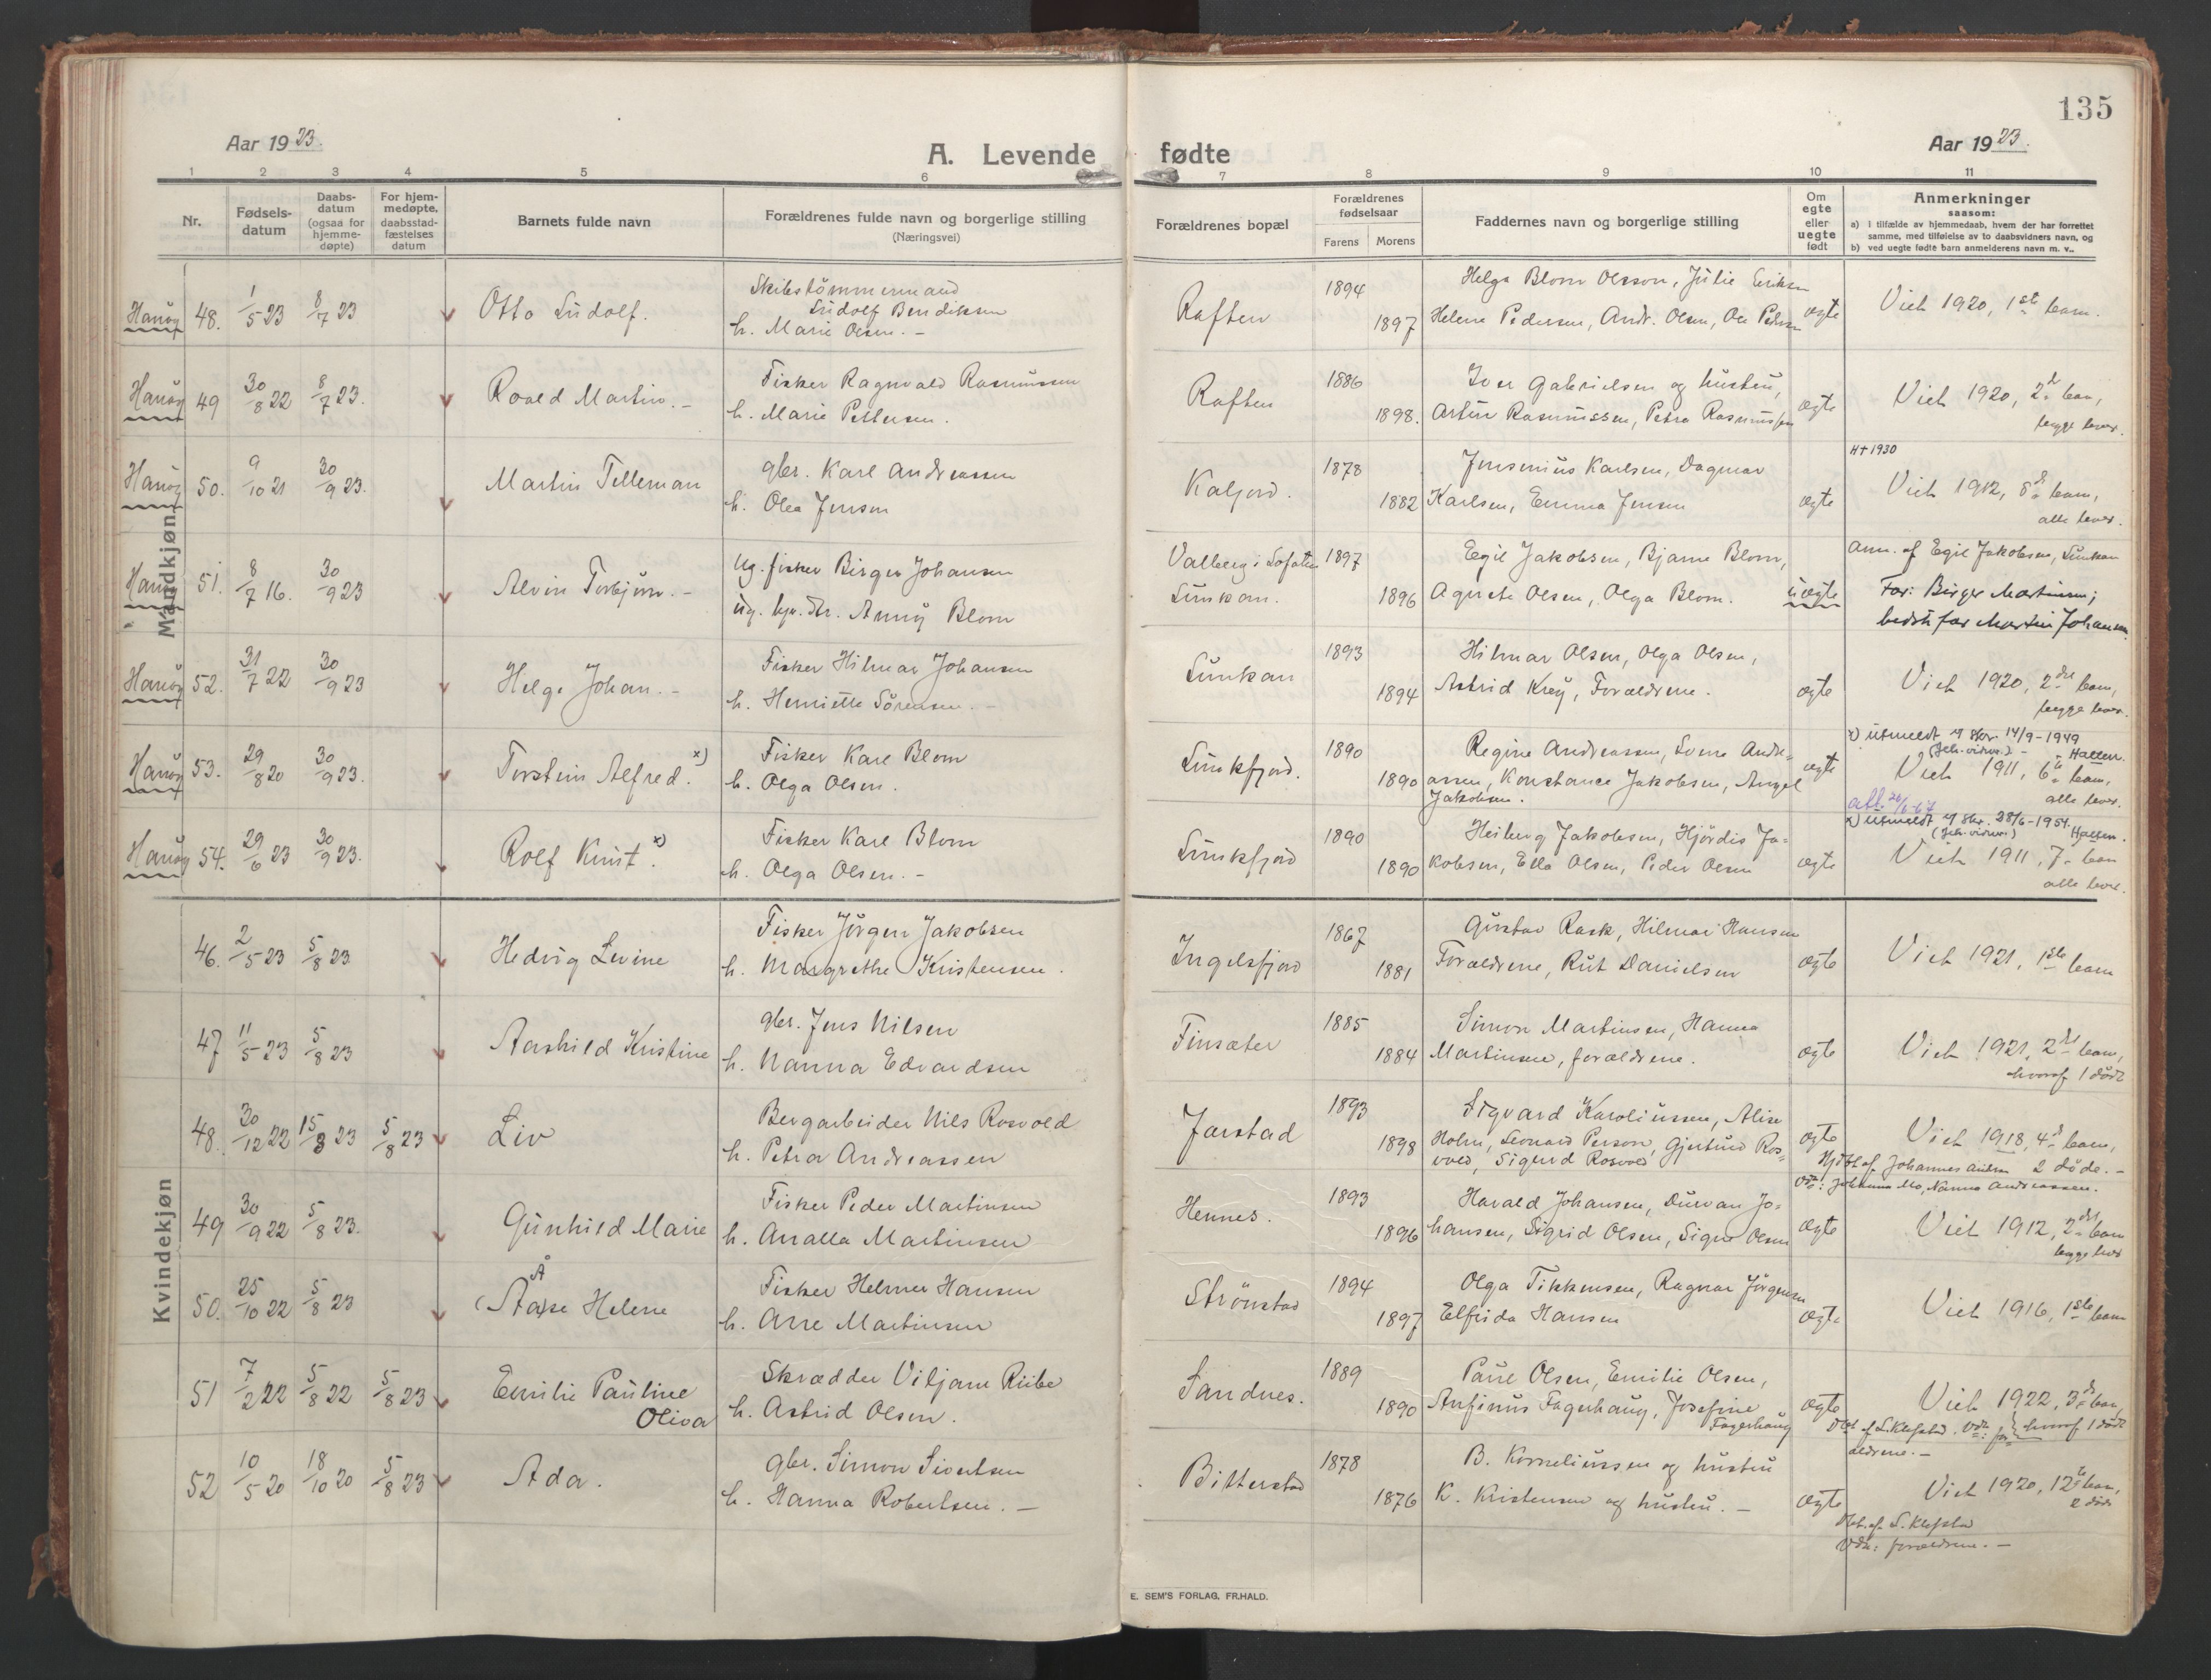 135
Aar 1923.
A. Levende fødte
Aar 1923.
1 2 3 4 5 6 7 8 9 10 11
Nr.
Fødsels-
datum
Daabs-
datum
(ogsaa for
hjemme-
døpte)
For hjem-
medøpte,
daabsstad-
fæstelses
datum
Barnets fulde navn
Forældrenes fulde navn og borgerlige stilling
(Næringsvei)
Forældrenes bopæl
Forældrenes
fødselsaar
Farens Morens
Faddernes navn og borgerlige stilling
Om
egte
eller
uegte
født
Anmerkninger
saasom:
a) I tilfælde av hjemmedaab, hvem der har forrettet
samme, med tilføielse av to daabsvidners navn, og
b) ved uegte fødte barn anmelderens navn m. v..
Mandkjøn
Hanøy 48. 1/5 23 8/7 23 Otto Ludolf.
Skibstømmermand
Ludolf Bendiksen
h. Marie Olsen. -
Raften 1894 1897
Helga Blom Olsson, Julie Eriksen
Helene Pedersen, Andr. Olsen, Ole Pedersen
egte
Viet 1920, 1ste barn.
Hanøy 49 30/8 22 8/7 23. Roald Martin. -
Fisker Ragnvald Rasmussen
h. Marie Pettersen.
Raften 1886 1898.
Iver Gabrielsen og hustru,
Artur Rasmussen, Petra Rasmussen
egte
Viet 1920, 2d barn,
begge lever.
Hanøy 50. 9/10 21 30/9 23. Martin Telleman
gbr. Karl Andreassen
h. Olea Jensen
Kaljord. 1878 1882
Jensenius Karlsen, Dagmar
Karlsen, Emma Jensen
egte
H+ 1930
Viet 1912, 8d barn,
alle lever.
Hanøy 51. 8/7 16. 30/9 23 Alvin Torbjørn. -
Ug. fisker Birger Johansen
ug. Anny Blom
Valberg i Lofoten
Lunkan. 1897 1896
Egil Jakobsen, Bjarne Blom,
Agnete Olsen, Olga Blom.
uegte
Anm. af Egil Jakobsen, Lunkan
Far: Birger Martinsen;
bedstefar Martin Johansen.
Hanøy 52. 31/7 22 30/9 23 Helge Johan. -
Fisker Hilmar Johansen
h. Henriette Sørensen. -
Lunkan 1893 1894
Hilmar Olsen, Olga Olsen,
Astrid Krey, Forældrene.
egte
Viet 1920, 2det barn,
begge lever.
Hanøy 53. 29/8 20 30/9 23. Torstein Alfred. x)
Fisker Karl Blom
h. Olga Olsen.
Lunkfjord. 1890 1890
Regine Andreassen, Sverre Andre-
assen, Konstance Jakobsen, Angel
Jakobsen.
egte
x) utmeldt 14/9-1949
(Jeh. vidner.) - Halsen.
Viet 1911, 6te barn,
alle lever.
Hanøy 54. 29/6 23 30/9 23. Rolf Knut. x)
Fisker Karl Blom
h. Olga Olsen. -
Lunkfjord 1890 1890
Heiberg Jakobsen, Hjördis Ja-
kobsen, Ella Olsen, Peder Olsen
egte
x) utmeldt 28/6-1954.
(Jeh. vidner.) Halsen.
Viet 1911, 7- barn
alle lever.
Kvindekjøn
46. 2/5 23 5/8 23. Hedvig Levine
Fisker Jörgen Jakobsen
h. Margrethe Kristensen.
Ingelsfjord 1867 1881
Gustav Rask, Hilmar Hansen
Forældrene, Rut Danielsen
egte
Viet 1921, 1ste barn
47 11/5 23 5/8 23 Aashild Kristine
gbr. Jens Nilsen
h. Nanna Edvardsen
Finsæter 1885 1884
Simon Martinsen, Hanna
Martinsen, forældrene.
egte
Viet 1921, 2det barn,
hvoraf 1 dødt
48. 30/12 22 15/3 23 5/8 23 Liv
Bergarbeider Nils Rosvold
h. Petra Andreassen
Jarstad 1893 1898
Sigvard Karoliussen, Alise
Holm, Leonard Person, Gjertrud Ros-
vold, Sigurd Rosvold
egte
Viet 1918, 4d barn,
2 döde. -
Hjdbt af Johannes
Vdn: Johanna Mo, Nanna Andreassen.
49 30/9 22 5/8 23. Gunhild Marie
Fisker Peder Martinsen
h. Analla Martinsen
Hennes. 1893 1896
Harald Johansen, Jo-
hansen, Sigrid Olsen, Signe Olsen
egte
Viet 1912, 2det barn
begge lever
50. 25/10 22 5/8 23 (Aa)se Helene
Å
Fisker Helmer Hansen
h. Arre Martinsen
Strönstad 1894 1897
Olga Tikkensen, Ragnar Jörgensen
Elfrida Hansen
egte
Viet 1916, 1ste barn
51 7/2 22 5/8 22 5/8 23 Emilie Pauline
Oliva
Skrædder Viljam Riibe
h. Astrid Olsen.
Sandnes. 1889 1890
Paul Olsen, Emilie Olsen,
Anfinus Fagerhaug, Josefine
Fagerhaug
egte
Viet 1922, 3d barn,
hvoraf 1 dödt
Dbt af S. Klefstad. Vdn: for-
ældrene. -
52 10/5 20 18/10 20 5/8 23 Ada.
gbr. Simon Sivertsen
h. Hanna Robertsen. -
Bitterstad 1878 1876
B. Korneliussen og hustru
K. Kristensen og hustru. -
egte
Viet 1920, 12te barn,
2 döde
Dbt. af S. Klefstad
Vdn: forældrene. -
E. SEM'S FORLAG, FR.HALD.